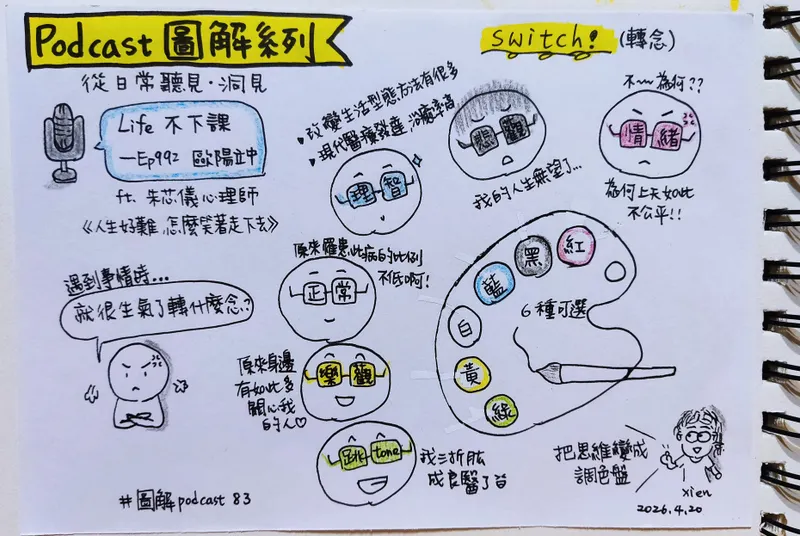 Podcast 圖解系列
從日常聽見·洞見
Life 不下課
—Ep992 歐陽立中
ft. 朱芯儀心理師
《人生好難,怎麼笑著走下去》
switch! (轉念)
改變生活型態方法有很多
現代醫療發達,治癒率高
理智
悲觀
我的人生無望了...
不~~為何??
情緒
為何上天如此
不公平!!
遇到事情時...
就很生氣了轉什麼念?
原來罹患此病的比例
不低啊!
正常
原來身邊
有如此多
關心我
的人♡
樂觀
跳tone
我三折肱
成良醫了
紅
黑
藍
白
黃
綠
6種可選
把思維變成
調色盤
xien
2026.4.20
#圖解podcast 83